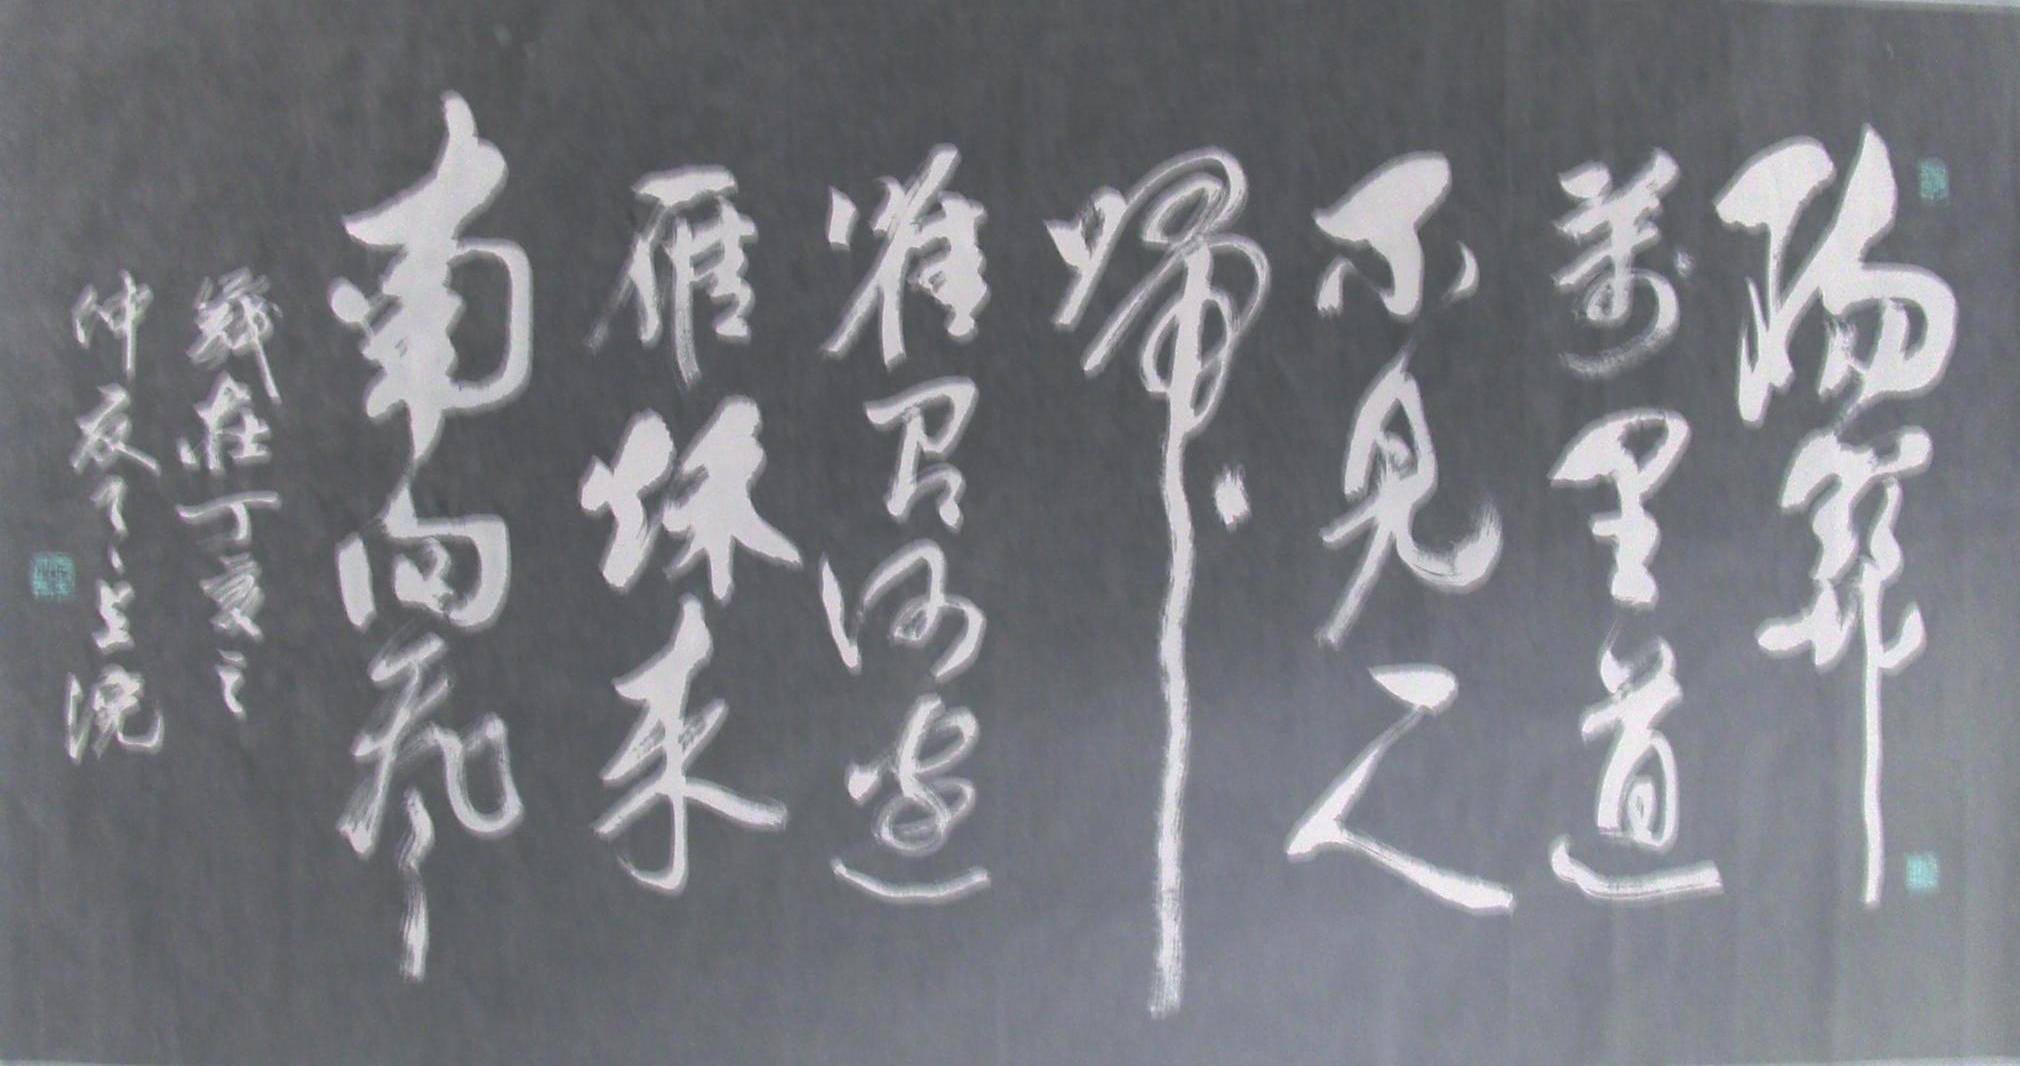 陽關
萬里道
不見一人
歸
唯有河邊
雁秋来
南向飛
丁亥之
仲夏上浣